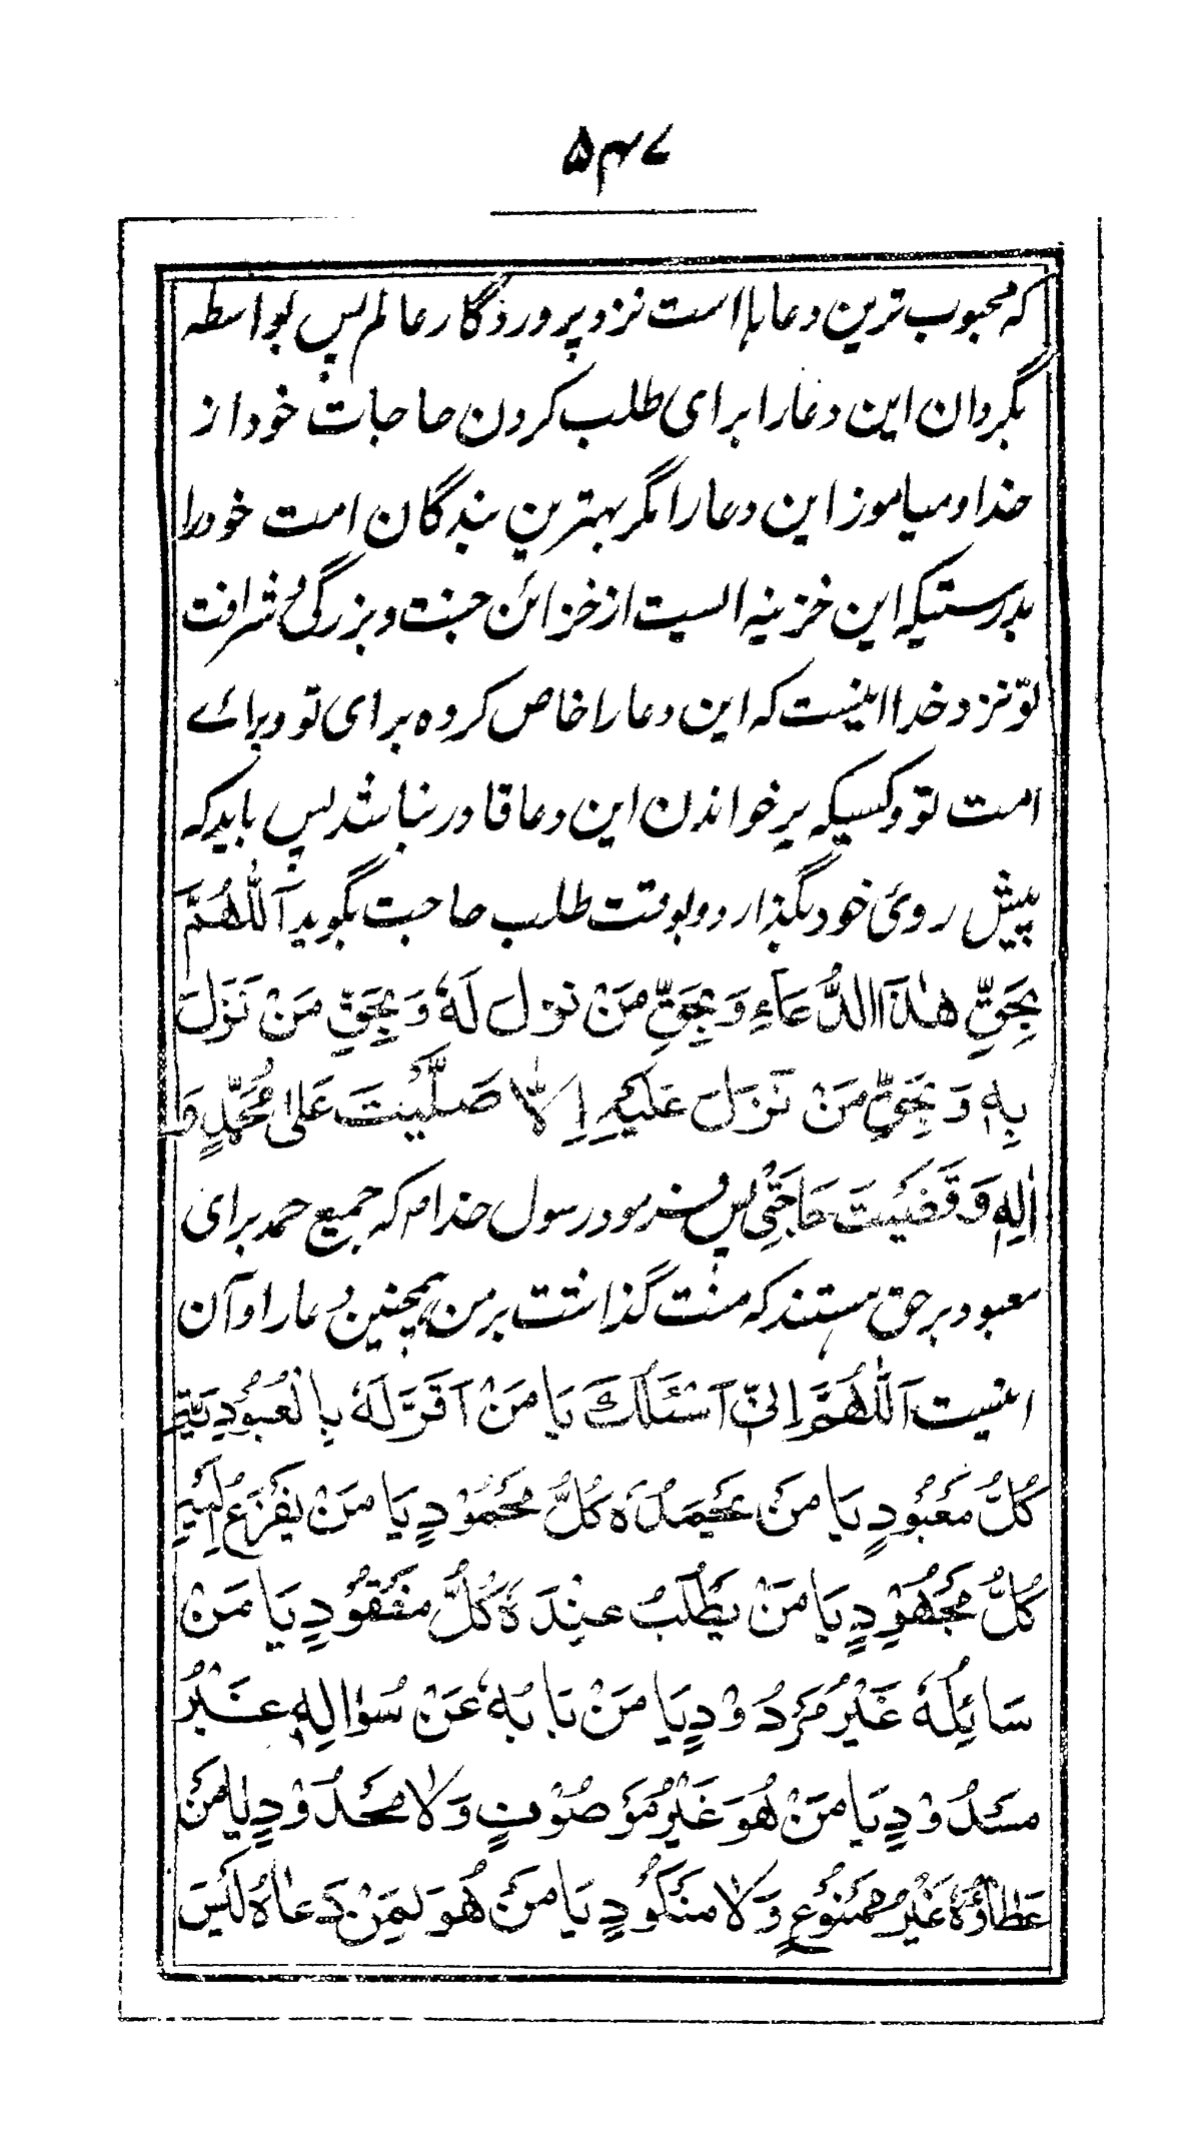 ۵۴۷
که محبوب ترین دعاها است نزد پروردگار عالم پس بواسطه
بگردان این دعا را برای طلب کردن حاجات خود از
خدا و میاموز این دعا را مگر بهترین بندگان امت خود را
بدرستیکه این خزینه الیست از خزائن جنت و بزرگی و شرافت
تو نزد خدا اینست که این دعا را خاص کرده برای تو و برائے
امت تو و کسیکه بر خواندن این دعا قادر نباشد پس باید که
پیش روی خود بگذارد و بوقت طلب حاجت بگوید اَللّٰهُمَّ
بِحَقِّ هٰذَا الدُّعَاءِ وَ بِحَقِّ مَنْ نزل لَهٗ وَ بِحَقِّ مَنْ نَزَلَ
بِهٖ وَ بِحَقِّ مَنْ نَزَلَ عَلَیْهِ اِلَّا صَلَّیْتَ عَلٰی مُحَمَّدٍ وَ
اٰلِهٖ وَ قَضَیْتَ حَاجَتِیْ پس فرمود رسول خدا م که جمیع حمد برای
معبود برحق هستند که منت گذاشت بر من همچنین دعا را و آن
اینست اَللّٰهُمَّ اِنِّیْ اَسْئَلُكَ یَا مَنْ اَقَرَّ لَهٗ بِالْعُبُوْدِیَّةِ
كُلُّ مَعْبُوْدٍ یَا مَنْ یَحْمَدُهٗ كُلُّ مَحْمُوْدٍ یَا مَنْ یَفْزَعُ اِلَیْهِ
كُلُّ مَجْهُوْدٍ یَا مَنْ یُطْلَبُ عِنْدَهٗ كُلُّ مَفْقُوْدٍ یَا مَنْ
سَائِلُهٗ غَیْرُ مَرْدُوْدٍ یَا مَنْ بَابُهٗ عَنْ سُؤَالِهٖ غَیْرُ
مَسْدُوْدٍ یَا مَنْ هُوَ غَیْرُ مَوْصُوْفٍ وَلَا مَحْدُوْدٍ یَا مَنْ
عَطَاؤُهٗ غَیْرُ مَمْنُوْعٍ وَلَا مَنْكُوْدٍ یَا مَنْ هُوَ لِمَنْ دَعَاهُ لَیْسَ